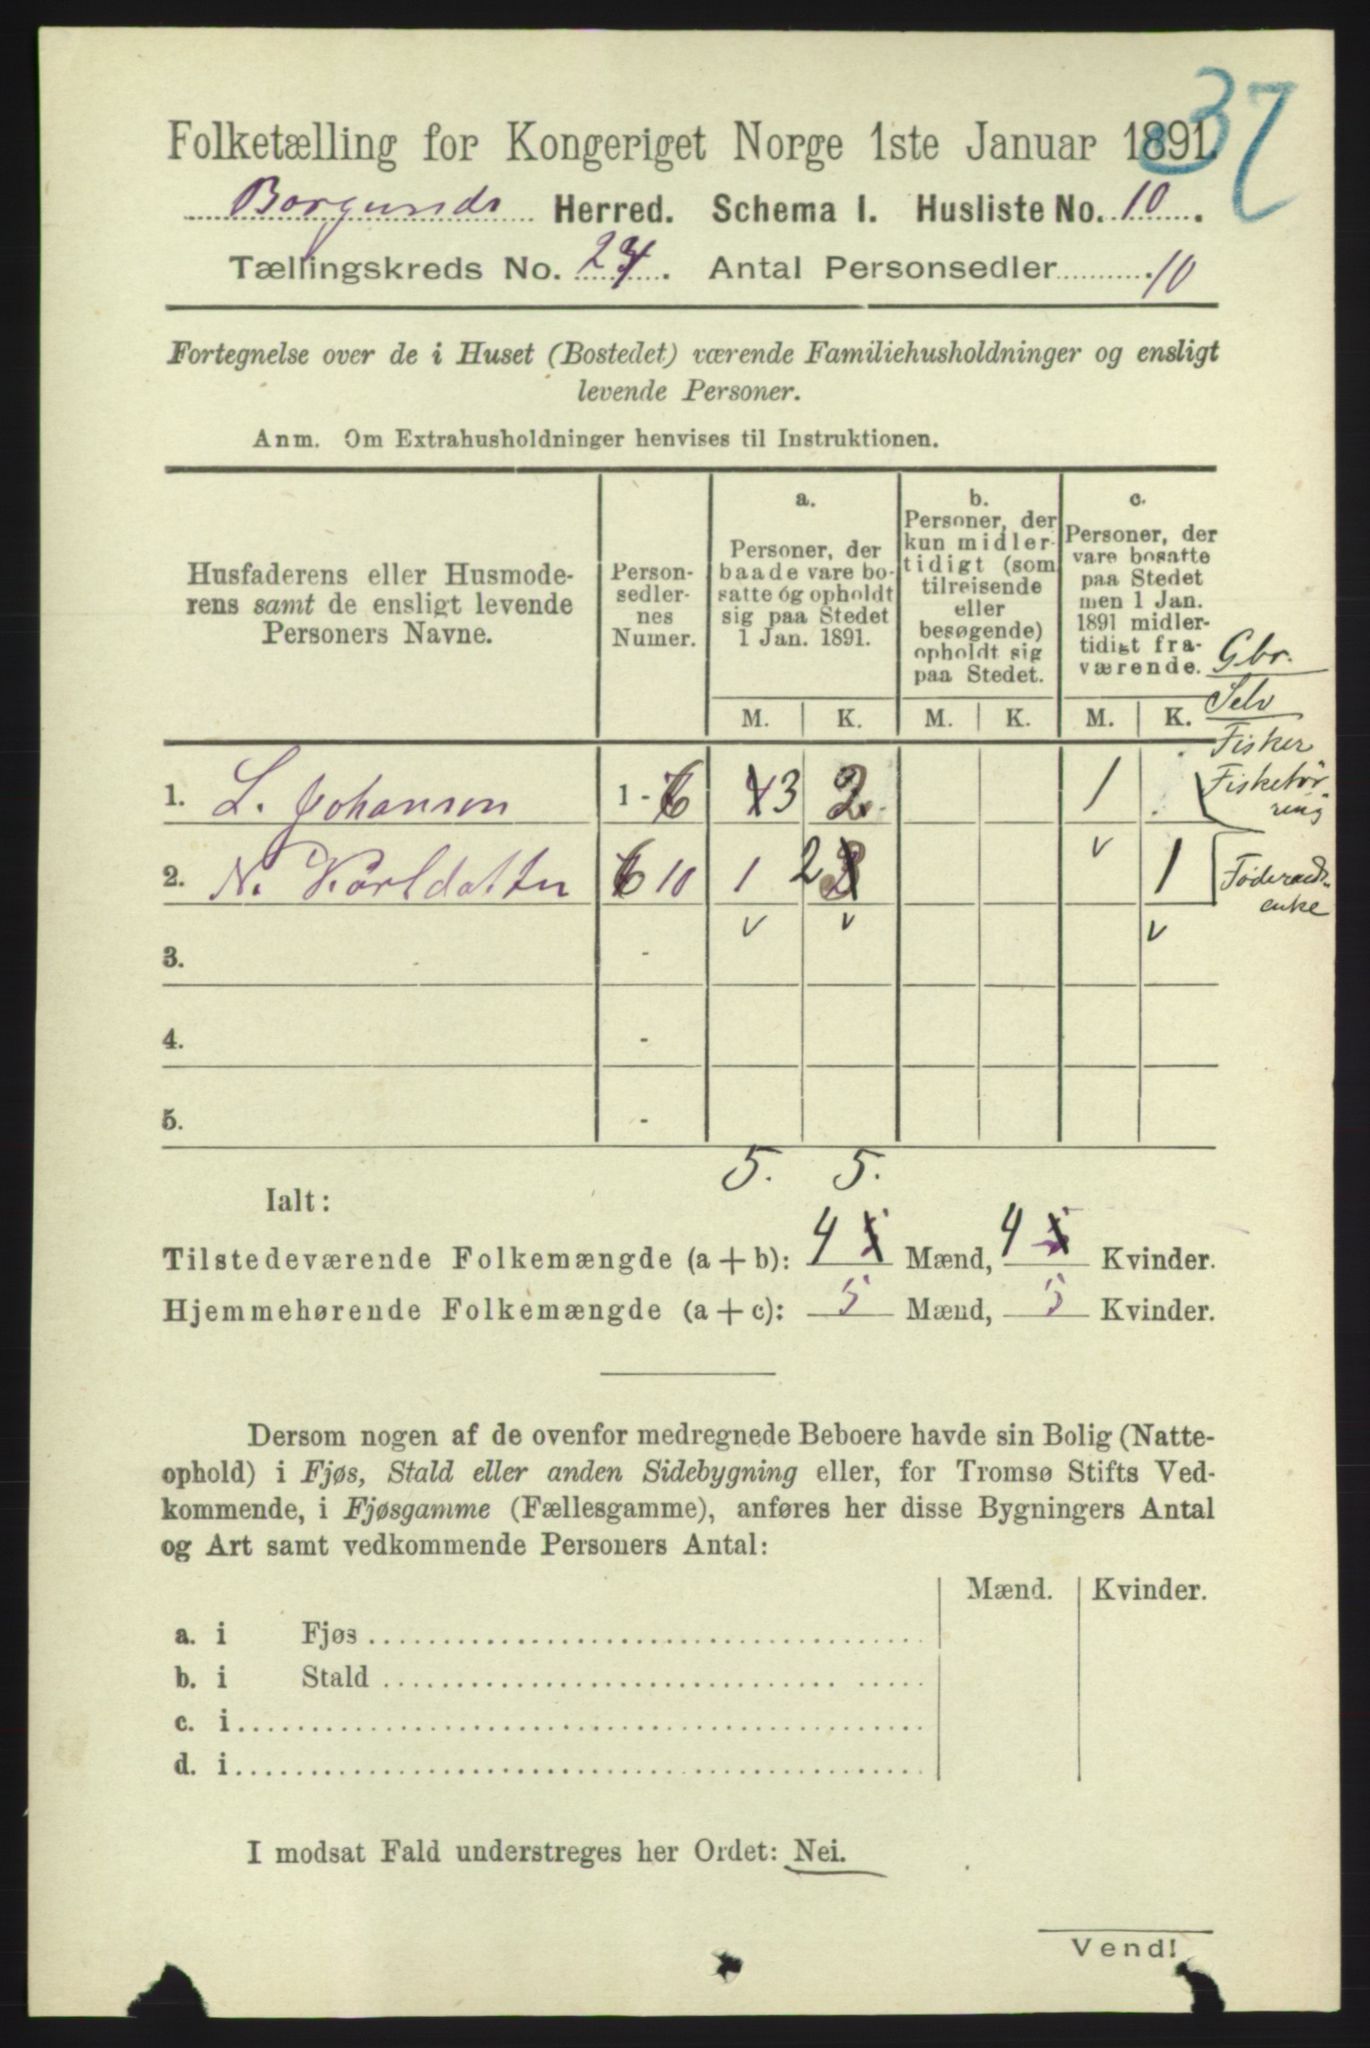 37
Folketælling for Kongeriget Norge 1ste Januar 1891.
Borgunds Herred. Schema I. Husliste No. 10.
Tællingskreds No. 24. Antal Personsedler 10
Fortegnelse over de i Huset (Bostedet) værende Familiehusholdninger og ensligt
levende Personer.
Anm. Om Extrahusholdninger henvises til Instruktionen.
Husfaderens eller Husmode-
rens samt de ensligt levende
Personers Navne.
Person-
sedler-
nes
Numer.
a.
Personer, der
baade vare bo-
satte og opholdt
sig paa Stedet
1 Jan. 1891.
b.
Personer, der
kun midler-
tidigt (som
tilreisende
eller
besøgende)
opholdt sig
paa Stedet.
c.
Personer, der
vare bosatte
paa Stedet
men 1 Jan.
1891 midler-
tidigt fra-
værende.
Gbr.
Selv
Fisker
Fisketør-
ring
M. K. M. K. M. K.
1. L. Johansen 1 - 6 3 2 1
2. N. Karldatter 6 10 1 2 1
Føderaads-
enke
3. -
4. -
5. -
5. 5.
Ialt:
Tilstedeværende Folkemængde (a + b): 4 5 Mænd, 4 5 Kvinder.
Hjemmehørende Folkemængde (a + c): 5 Mænd, 5 Kvinder.
Dersom nogen af de ovenfor medregnede Beboere havde sin Bolig (Natte-
ophold) i Fjøs, Stald eller anden Sidebygning eller, for Tromsø Stifts Ved-
kommende, i Fjøsgamme (Fællesgamme), anføres her disse Bygningers Antal
og Art samt vedkommende Personers Antal:
Mænd. Kvinder.
a. i Fjøs
b. i Stald
c. i
d. i
I modsat Fald understreges her Ordet: Nei.
Vend!